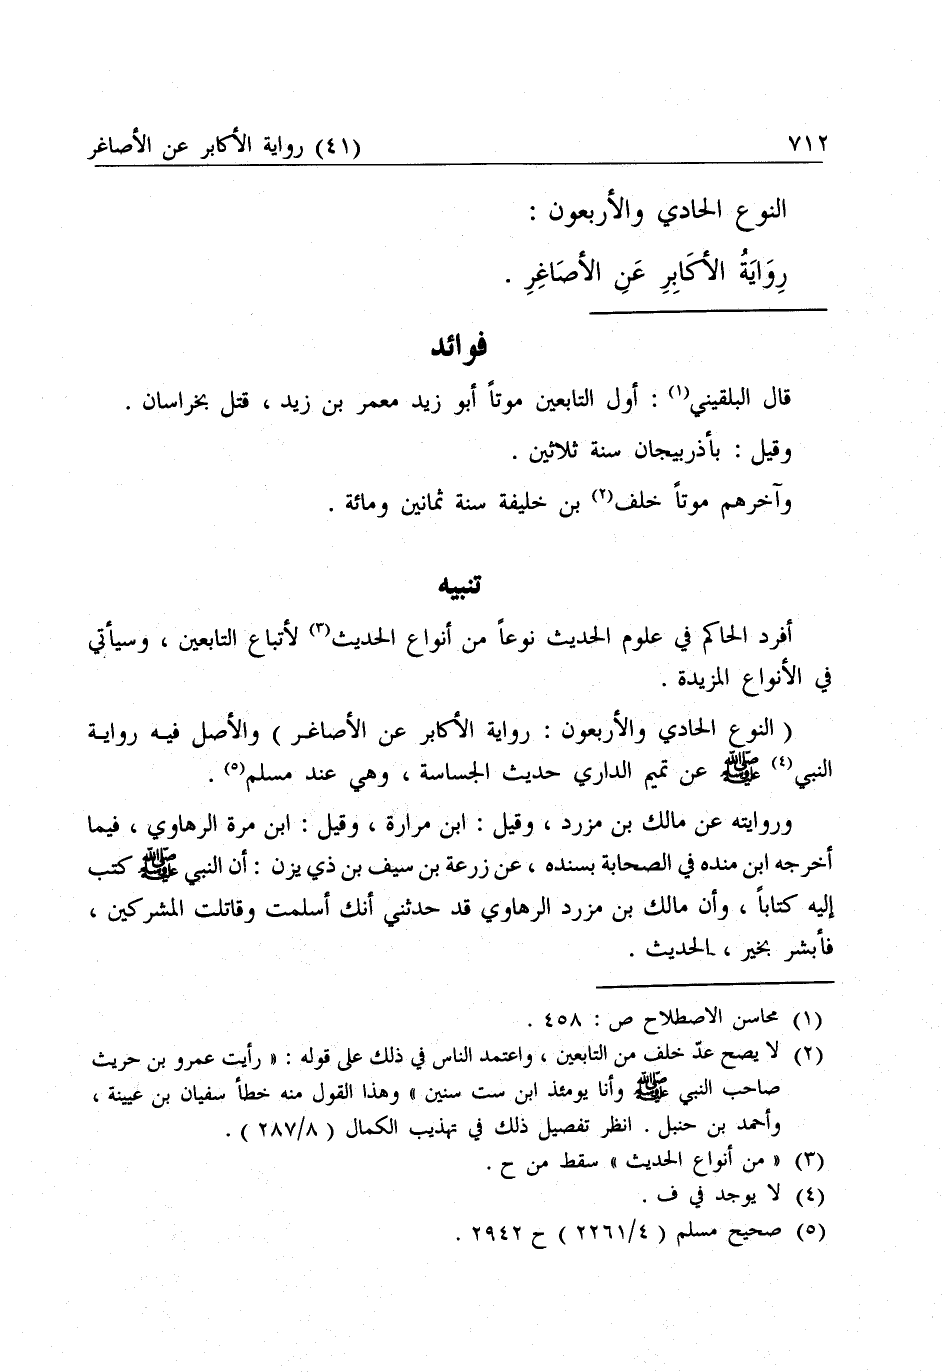 ٧١٢ (٤١) رواية الأكابر عن الأصاغر
النوع الحادي والأربعون :
رِوَايَةُ الأكَابِرِ عَنِ الأصَاغِرِ .
فوائد
قال البلقيني(١) : أول التابعين موتاً أبو زيد معمر بن زيد ، قتل بخراسان .
وقيل : بأذربيجان سنة ثلاثين .
وآخرهم موتاً خلف(٢) بن خليفة سنة ثمانين ومائة .
تنبيه
أفرد الحاكم في علوم الحديث نوعاً من أنواع الحديث(٣) لأتباع التابعين ، وسيأتي
في الأنواع المزيدة .
( النوع الحادي والأربعون : رواية الأكابر عن الأصاغر ) والأصل فيه رواية
النبي(٤) ﷺ عن تميم الداري حديث الجساسة ، وهي عند مسلم(٥) .
وروايته عن مالك بن مزرد ، وقيل : ابن مرارة ، وقيل : ابن مرة الرهاوي ، فيما
أخرجه ابن منده في الصحابة بسنده ، عن زرعة بن سيف بن ذي يزن : أن النبي ﷺ كتب
إليه كتاباً ، وأن مالك بن مزرد الرهاوي قد حدثني أنك أسلمت وقاتلت المشركين ،
فأبشر بخير ، الحديث .
(١) محاسن الاصطلاح ص : ٤٥٨ .
(٢) لا يصح عدّ خلف من التابعين ، واعتمد الناس في ذلك على قوله : « رأيت عمرو بن حريث
صاحب النبي ﷺ وأنا يومئذ ابن ست سنين » وهذا القول منه خطأ سفيان بن عيينة ،
وأحمد بن حنبل . انظر تفصيل ذلك في تهذيب الكمال ( ٢٨٧/٨ ) .
(٣) « من أنواع الحديث » سقط من ح .
(٤) لا يوجد في ف .
(٥) صحيح مسلم ( ٢٢٦١/٤ ) ح ٢٩٤٢ .